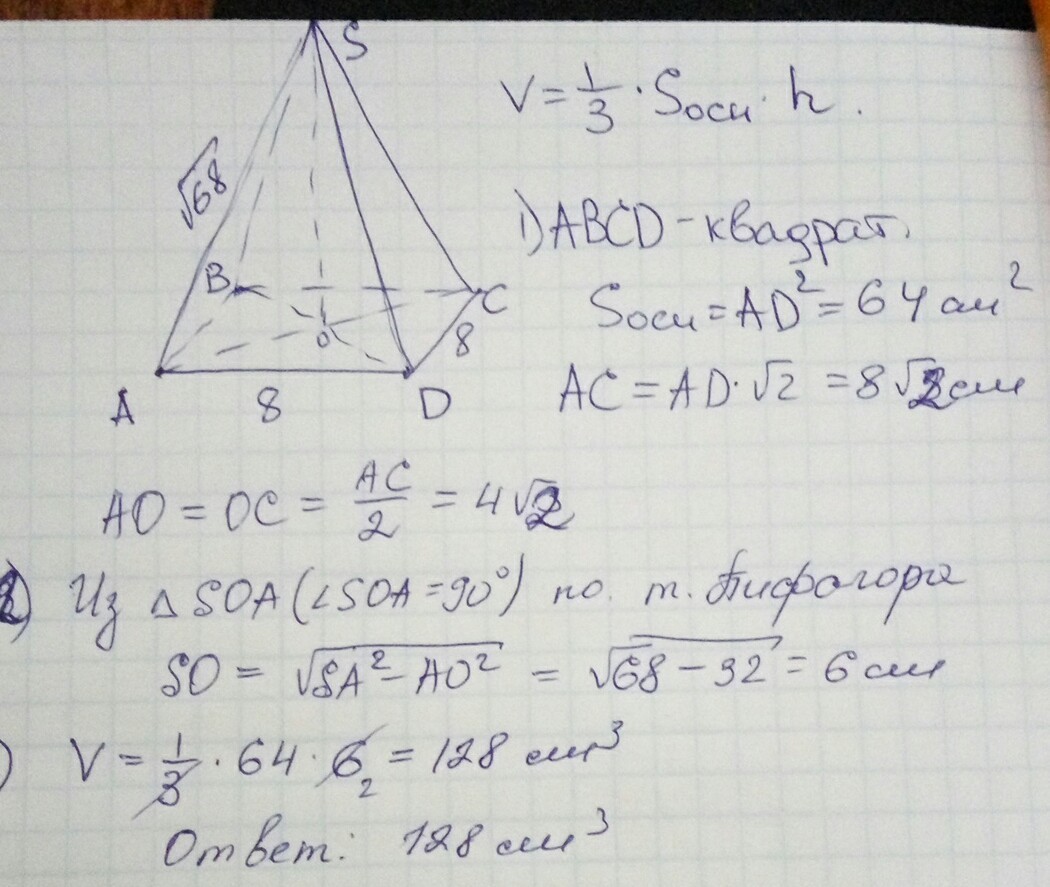 S
V = 1/3 · Sосн · h.
√68
1) ABCD – квадрат.
B
Sосн = AD² = 64 см²
C
O
8
AC = AD · √2 = 8√2 см
A
8
D
AO = OC = AC/2 = 4√2
2) Из △ SOA (∠SOA = 90°) по т. Пифагора
SO = √SA² – AO² = √68 – 32 = 6 см
) V = 1/3 · 64 · 6 2 = 128 см³
Ответ: 128 см³